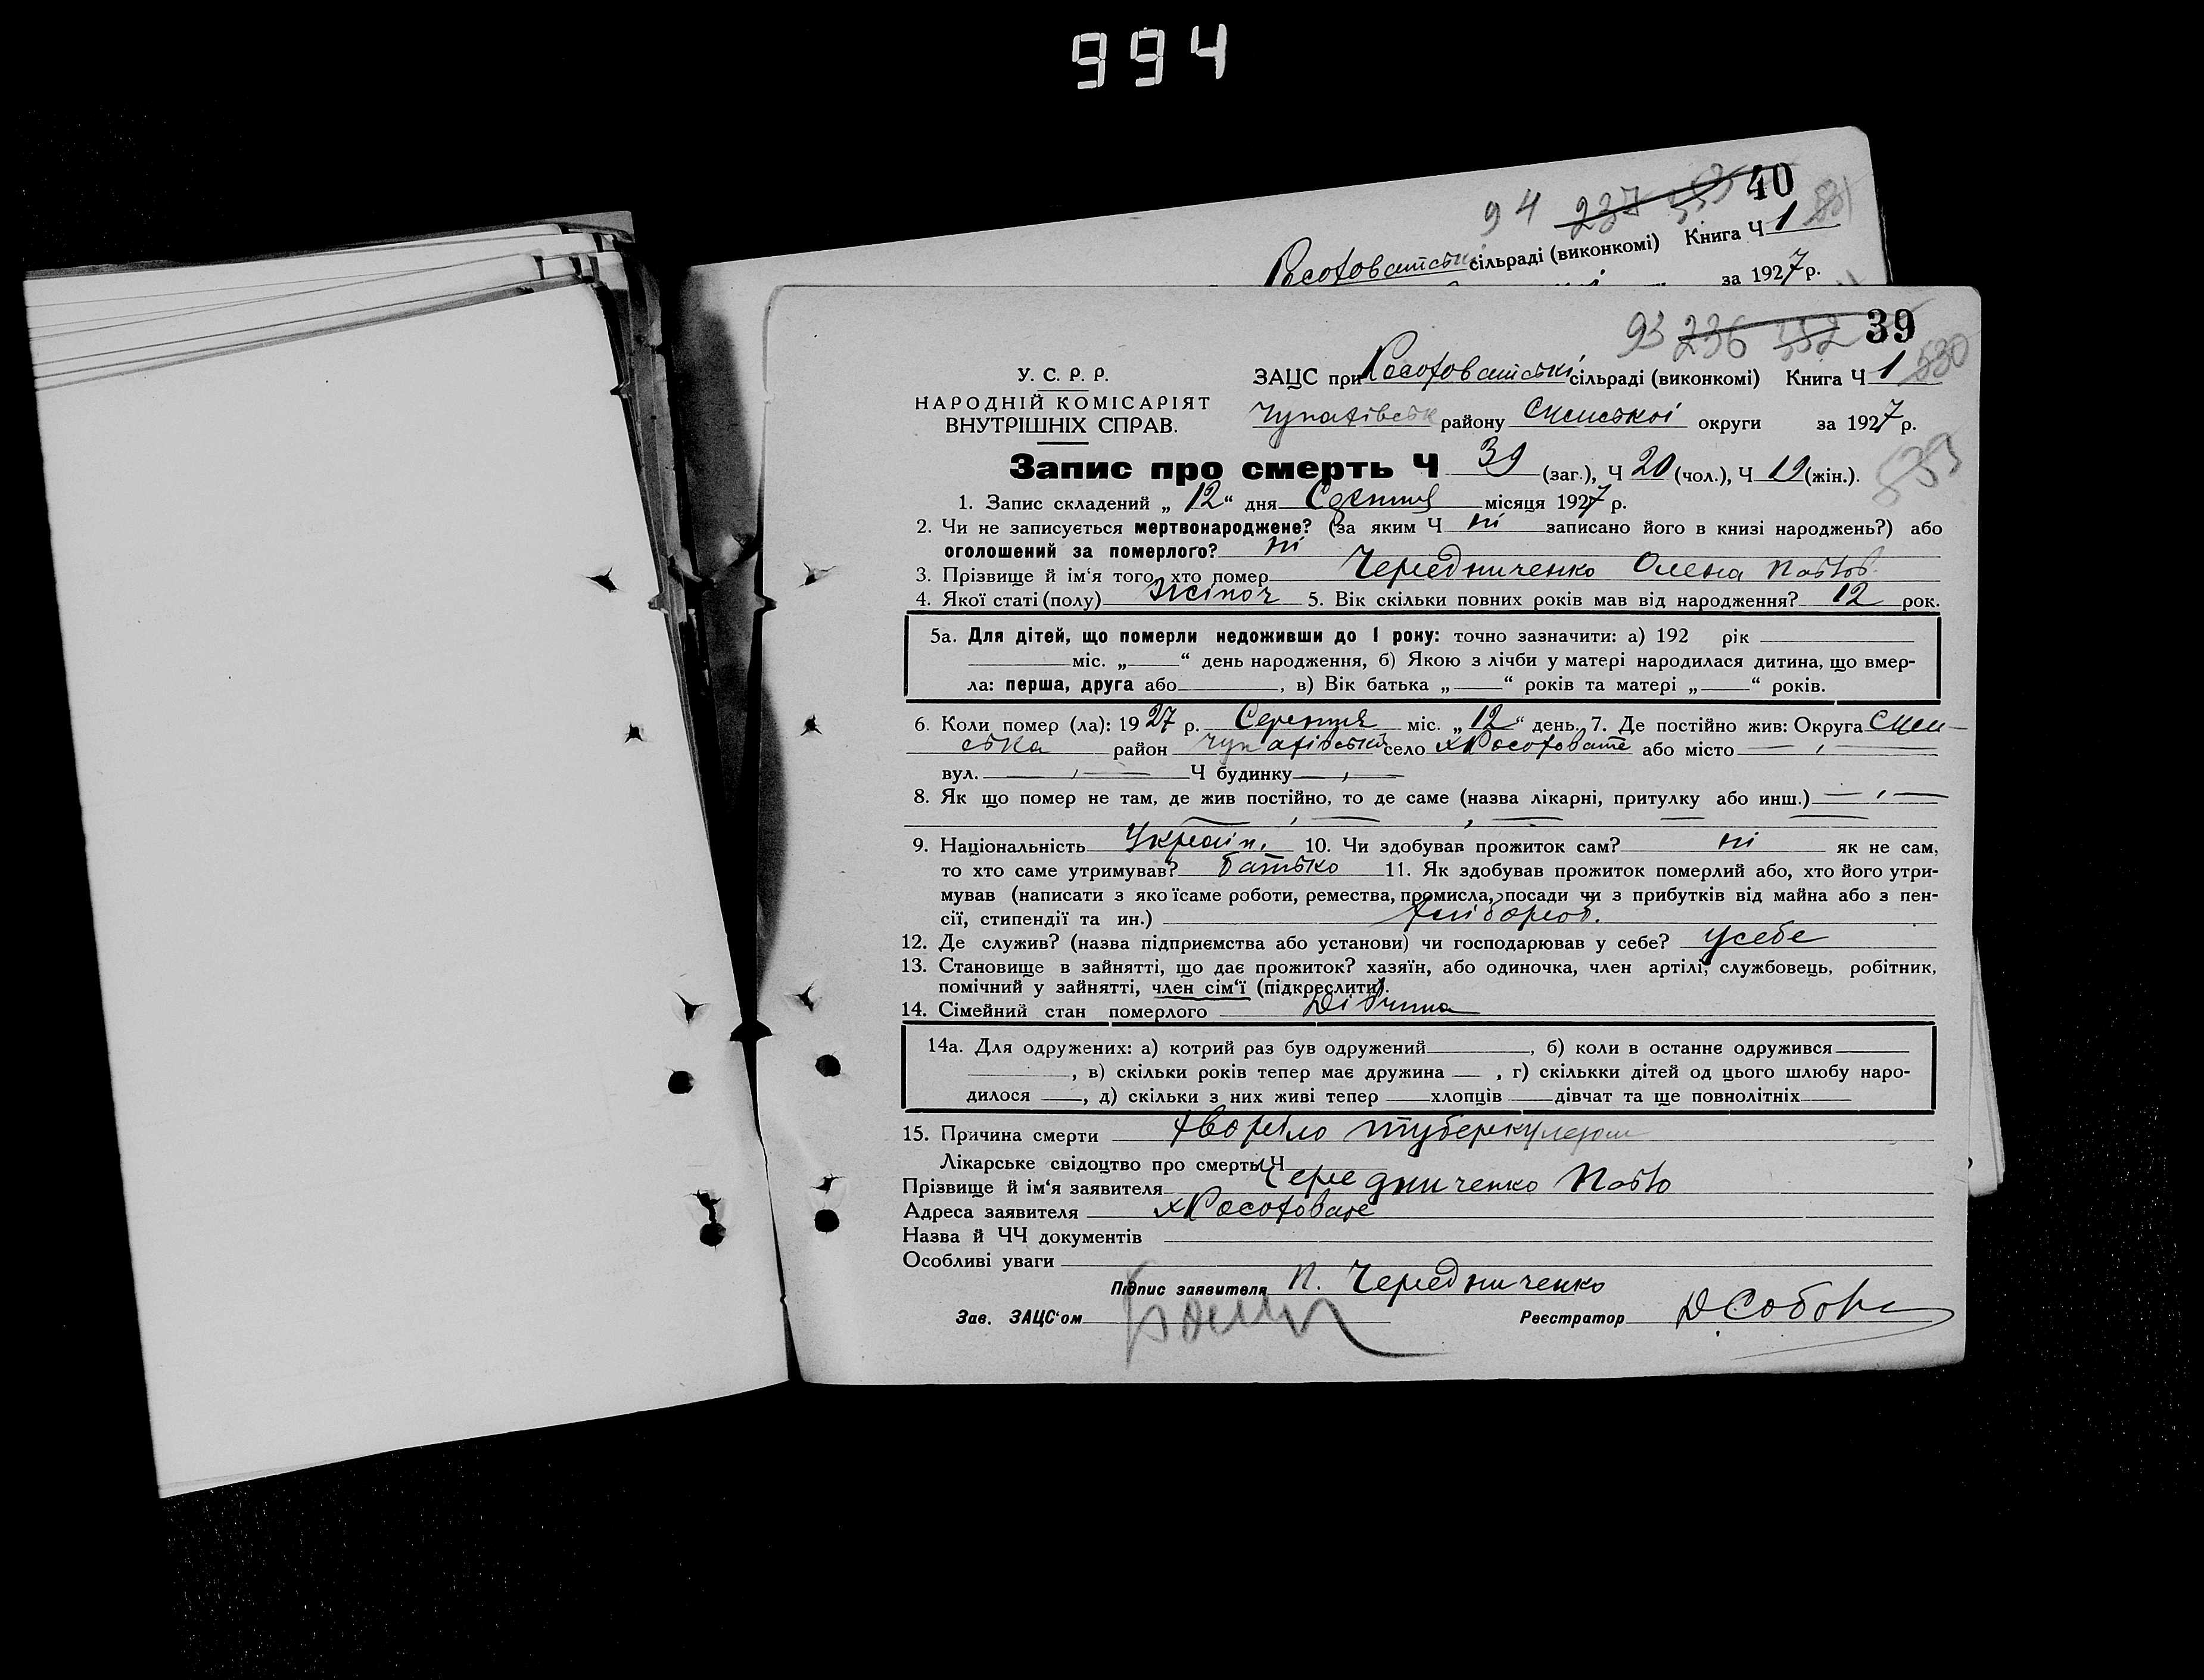 994
94 237 353 40
сільраді (виконкомі) Книга Ч 1
за 1927 р.
93 236 352 39
530
У. С. Р. Р.
НАРОДНІЙ КОМІСАРІЯТ
ВНУТРІШНІХ СПРАВ.
ЗАЦС при сільраді (виконкомі) Книга Ч 1
району Сумської округи за 1927 р.
Запис про смерть Ч 39 (заг.), Ч 20 (чол.), Ч 19 (жін.).
1. Запис складений „ 12 “ дня Серпня місяця 1927 р.
2. Чи не записується мертвонароджене? (за яким Ч ні записано його в книзі народжень?) або
оголошений за померлого? ні
3. Прізвище й ім‘я того, хто помер Чередниченко Олена Павлов.
4. Якої статі (полу) жіноч 5. Вік скільки повних років мав від народження? 12 рок.
5а. Для дітей, що померли недоживши до 1 року: точно зазначити: а) 192 рік
міс. „ “ день народження, б) Якою з лічби у матері народилася дитина, що вмер-
ла: перша, друга або , в) Вік батька „ “ років та матері „ “ років.
6. Коли помер (ла): 1927 р. Серпня міс. „ 12 “ день. 7. Де постійно жив: Округа Сум-
ська район село або місто
вул. Ч будинку
8. Як що помер не там, де жив постійно, то де саме (назва лікарні, притулку або инш.)
9. Національність Україн. 10. Чи здобував прожиток сам? ні як не сам,
то хто саме утримував? батько 11. Як здобував прожиток померлий або, хто його утри-
мував (написати з яко їсаме роботи, ремества, промисла, посади чи з прибутків від майна або з пен-
сії, стипендії та ин.) хлібороб.
12. Де служив? (назва підприємства або установи) чи господарював у себе? усебе
13. Становище в зайнятті, що дає прожиток? хазяїн, або одиночка, член артілі, службовець, робітник,
помічний у зайнятті, член сім‘ї (підкреслити).
14. Сімейний стан померлого дівчина
14а. Для одружених: а) котрий раз був одружений , б) коли в останнє одружився
, в) скільки років тепер має дружина , г) скількки дітей од цього шлюбу наро-
дилося , д) скільки з них живі тепер хлопців дівчат та ще повнолітніх
15. Причина смерти хворіло туберкулезом
Лікарське свідоцтво про смерть Ч
Прізвище й ім‘я заявителя Чередниченко Павло
Адреса заявителя
Назва й ЧЧ документів
Особливі уваги
Підпис заявителя П. Чередниченко
Зав. ЗАЦС‘ом Реєстратор